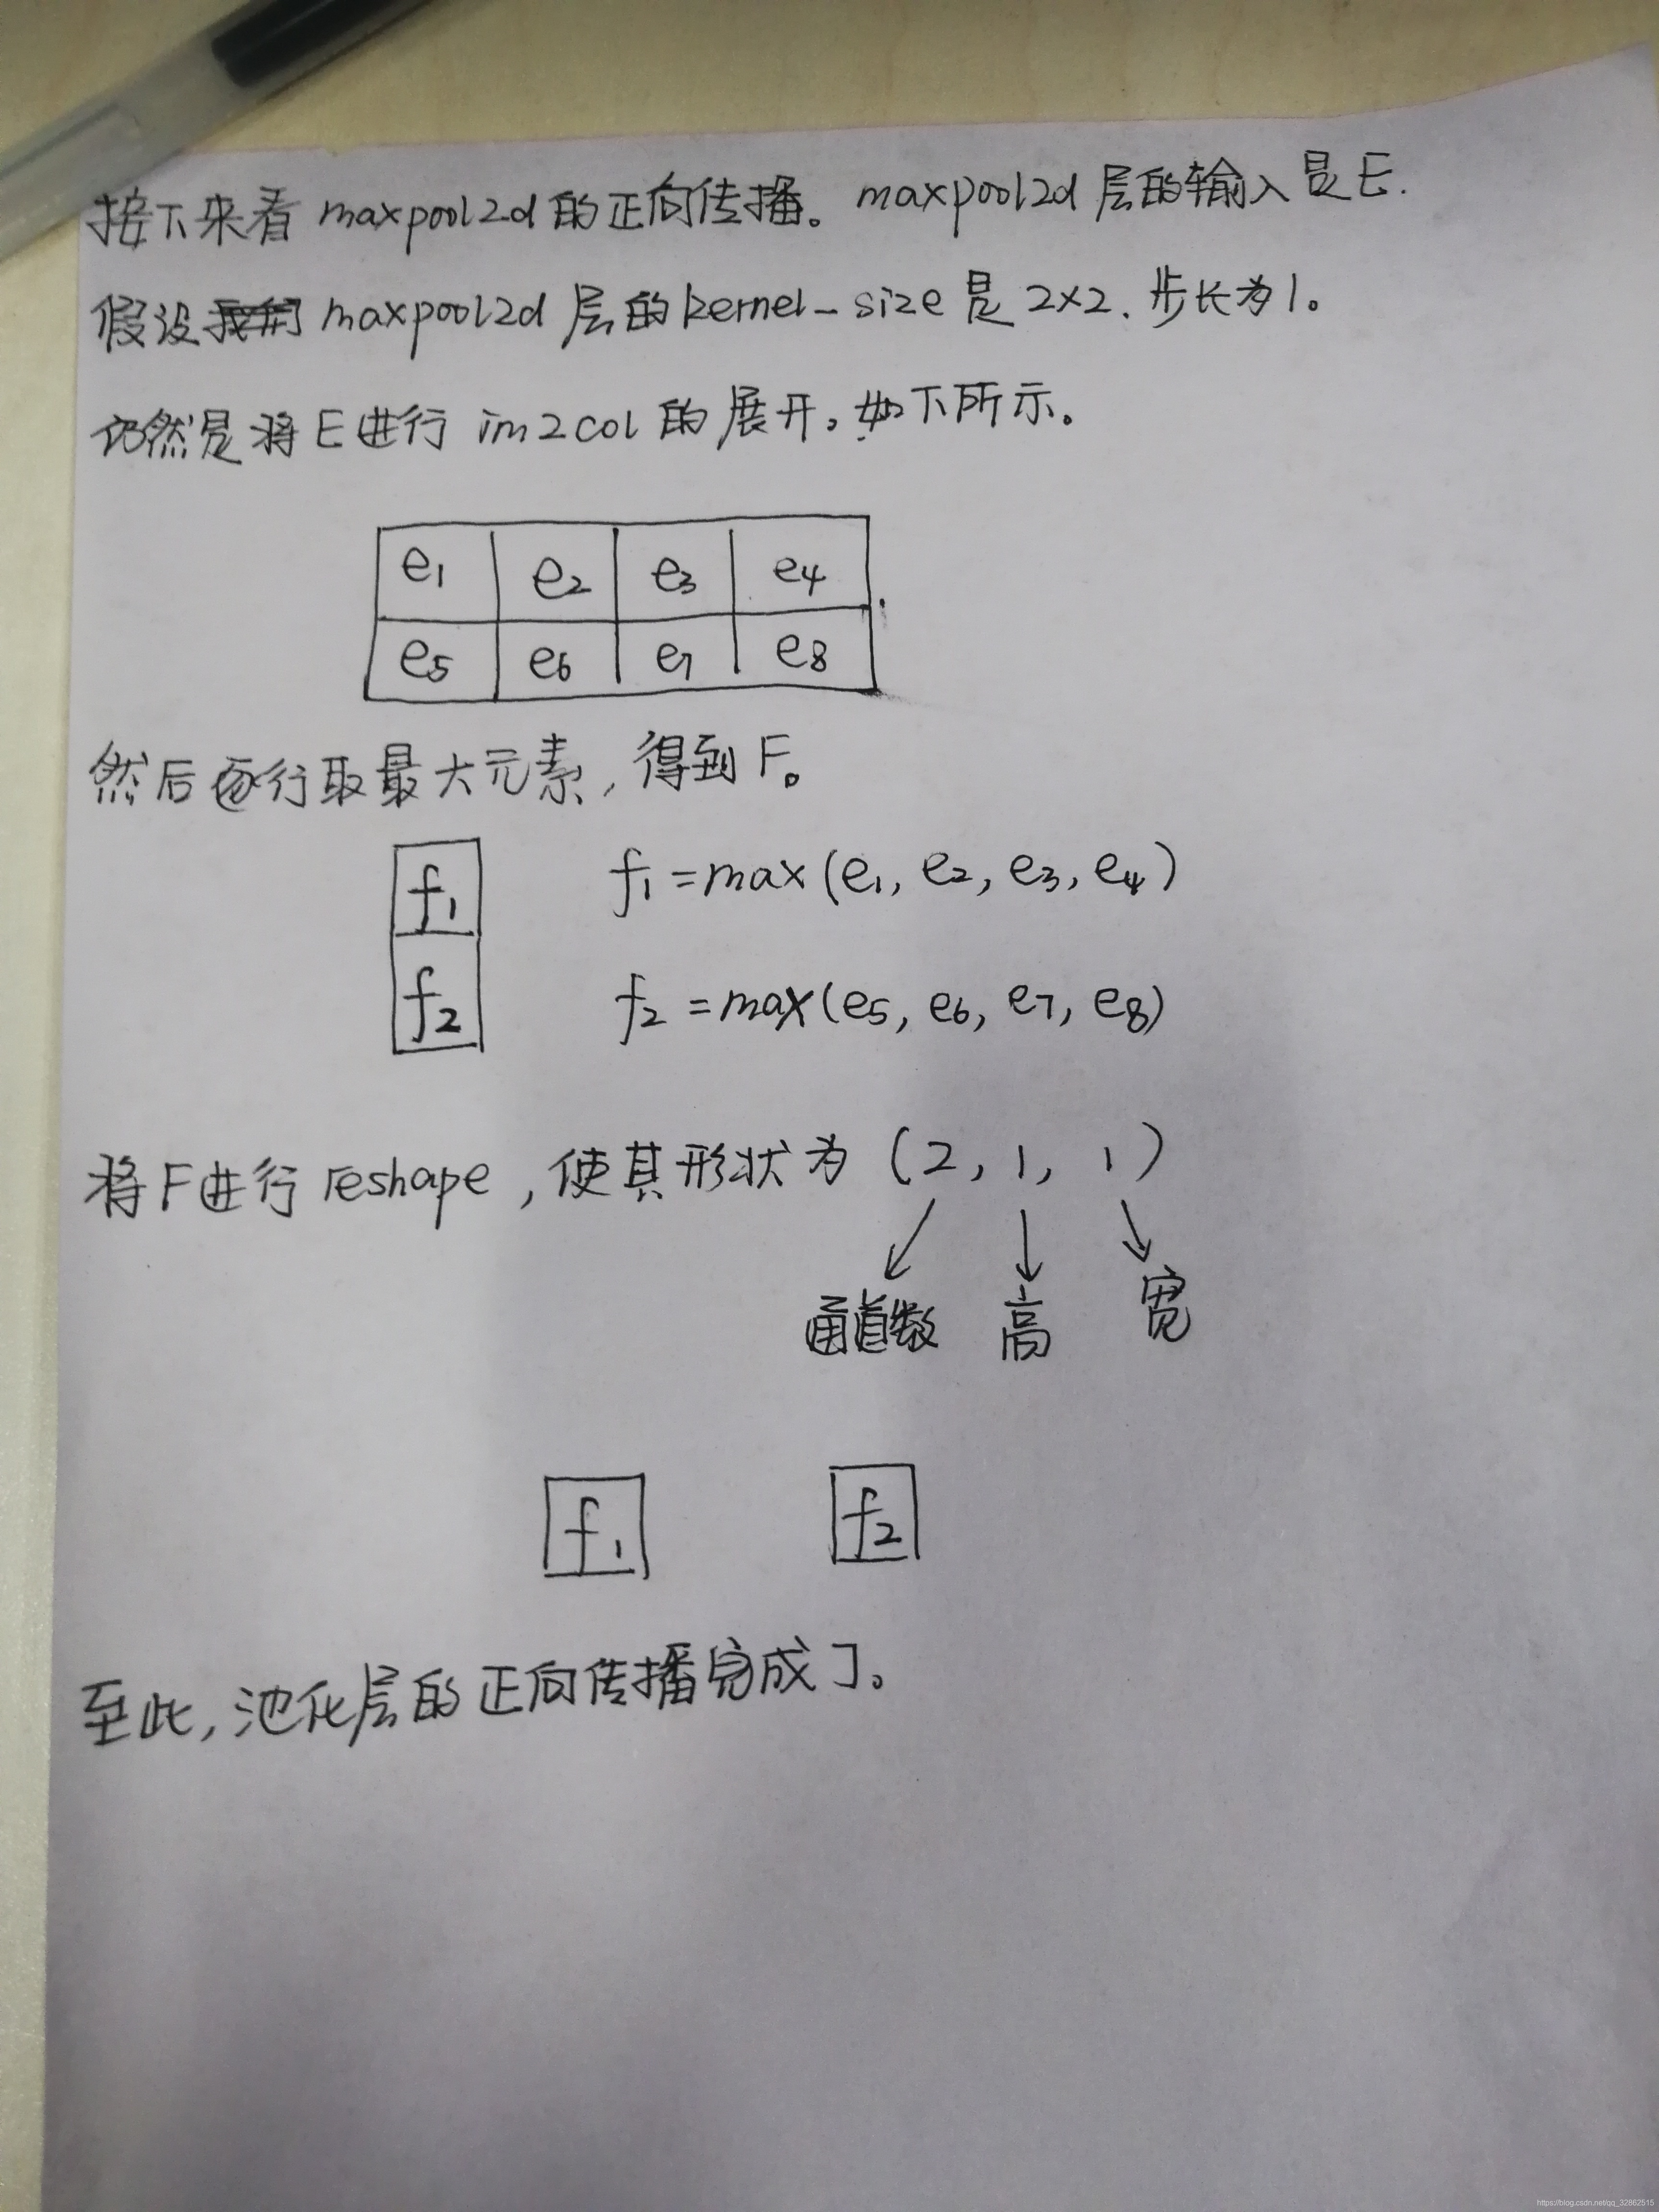 接下来看 maxpool2d 的正向传播。maxpool2d 层的输入是E.
假设 maxpool2d 层的 kernel-size 是 2×2. 步长为1。
仍然是将E进行 im2col 的展开。如下所示。
e1 e2 e3 e4
e5 e6 e7 e8
然后逐行取最大元素, 得到F。
f1 f1=max(e1, e2, e3, e4)
f2 f2=max(e5, e6, e7, e8)
将F进行reshape, 使其形状为 (2, 1, 1)
通道数 高 宽
f1 f2
至此, 池化层的正向传播完成了。
https://blog.csdn.net/qq_32862515